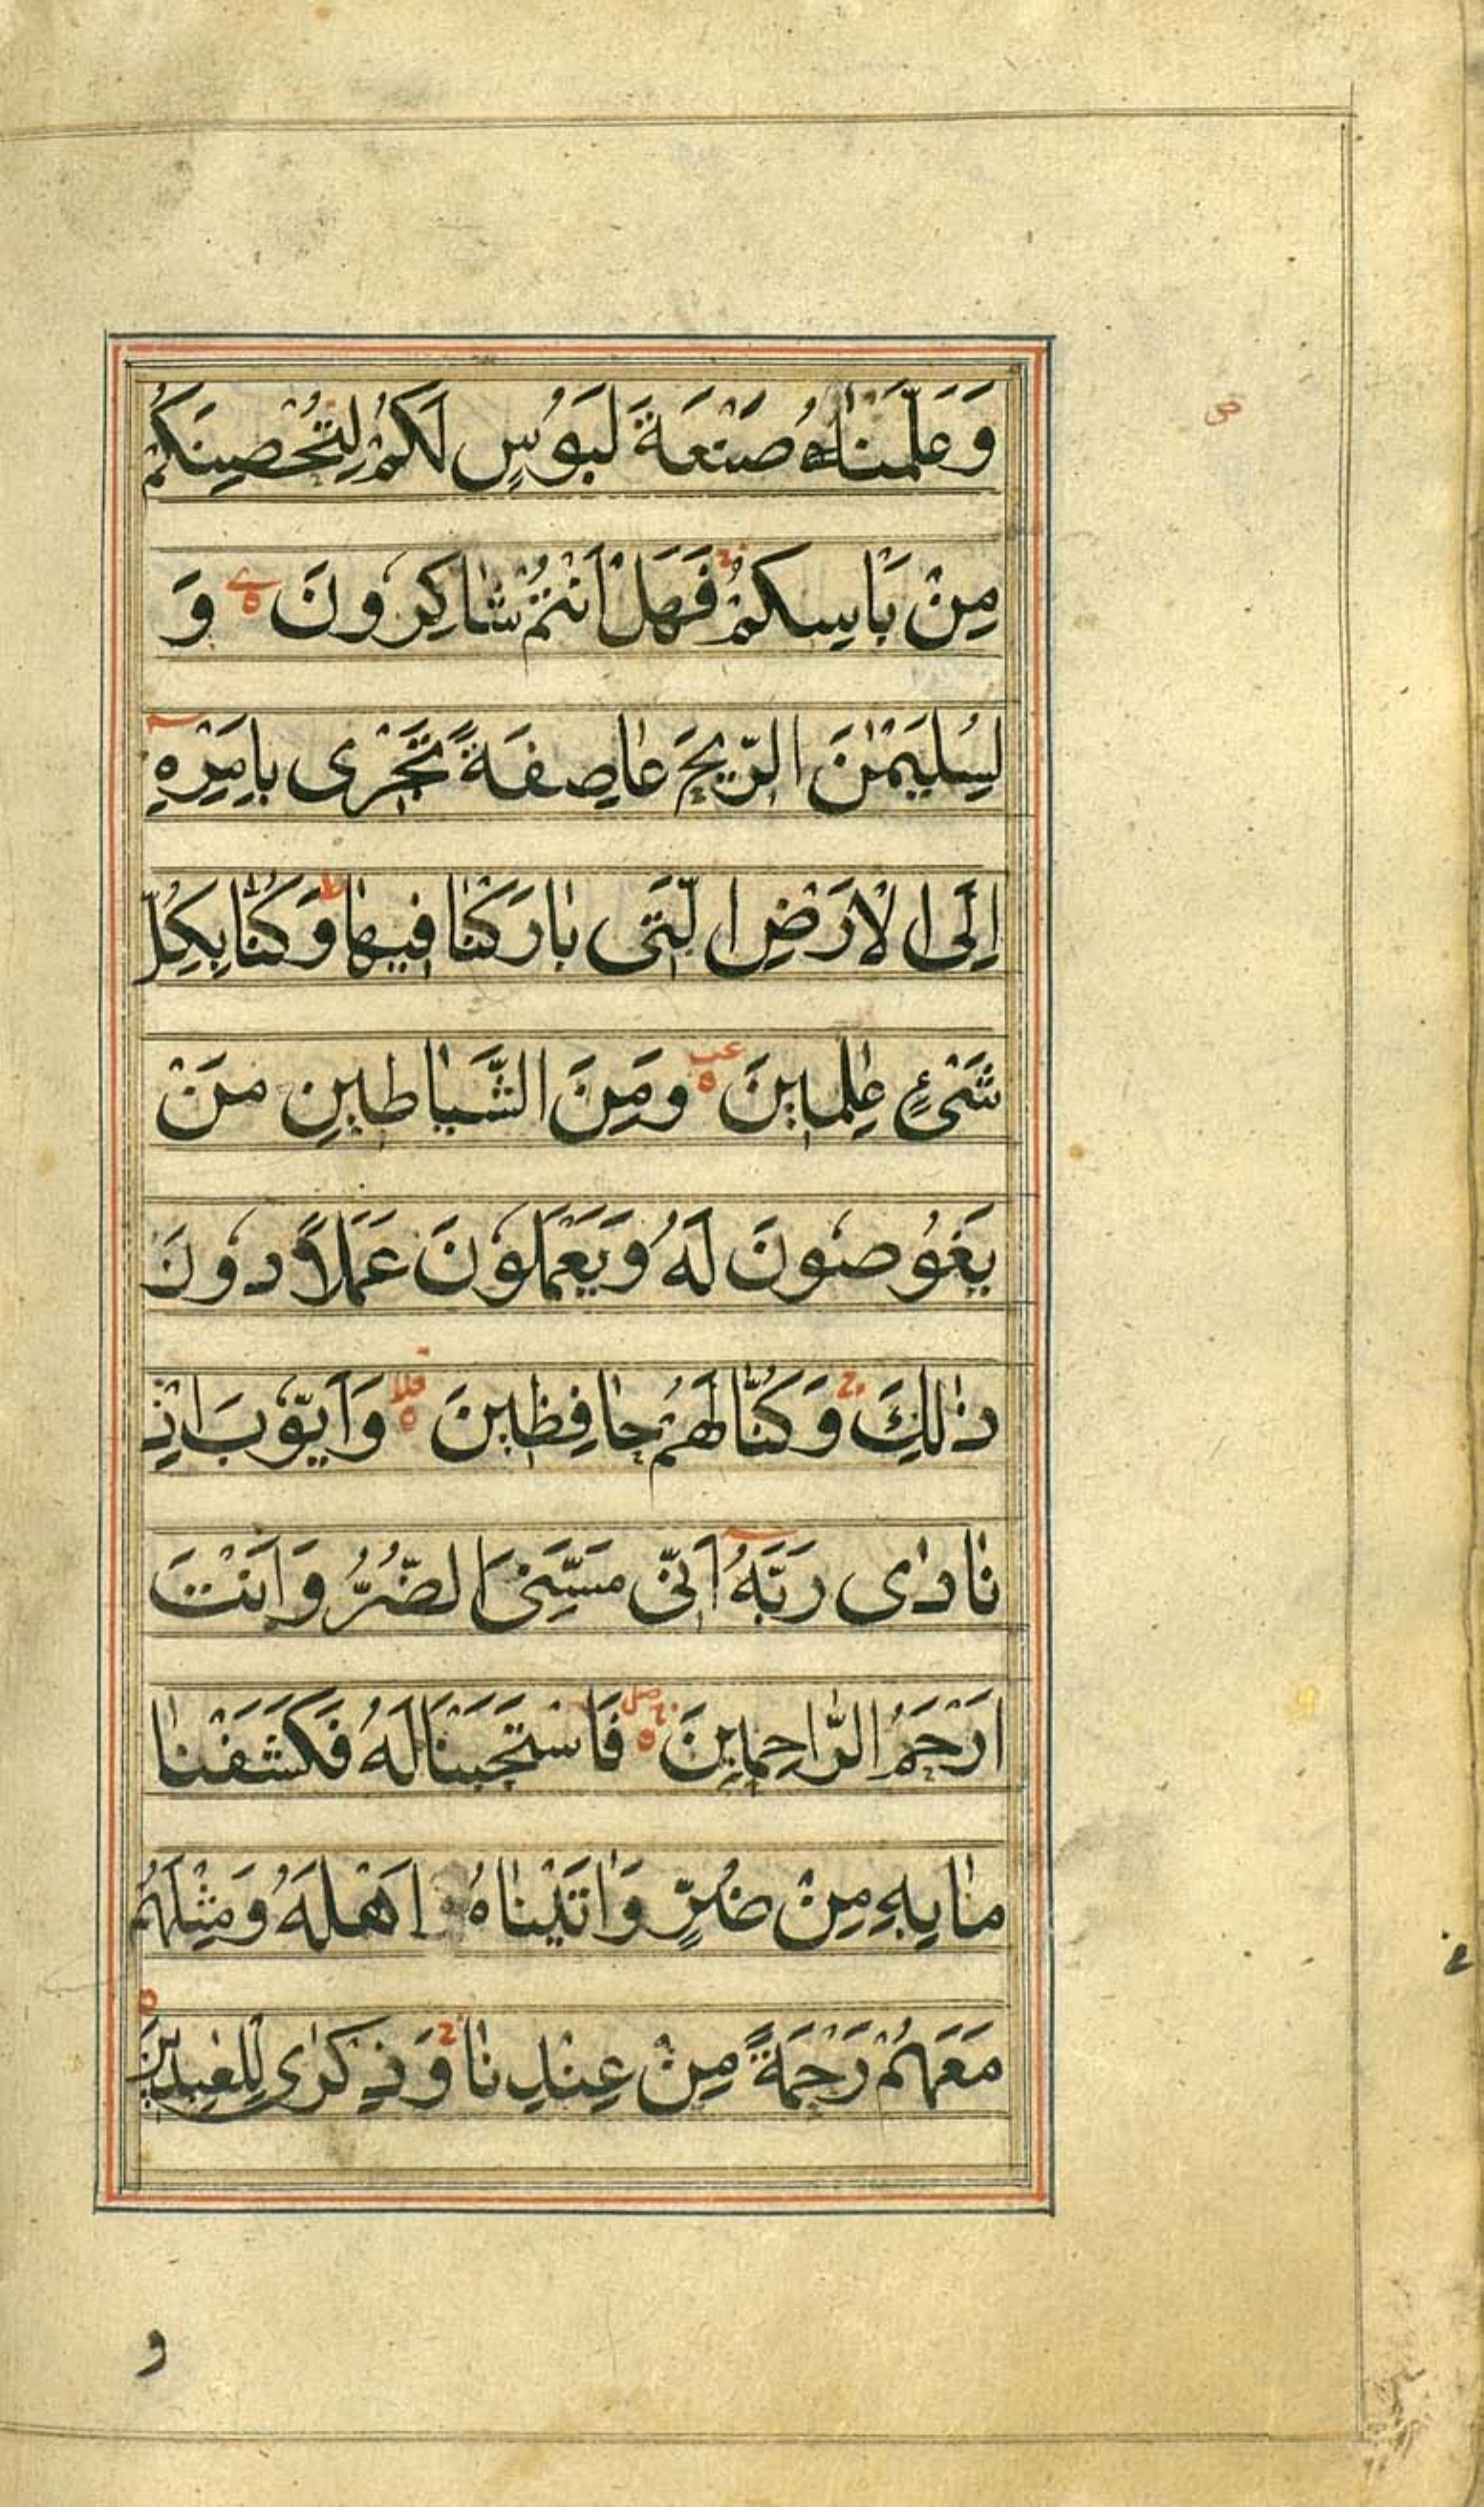 وَعَلَّمْنَاهُ صَنْعَةَ لَبَوُسٍ لَكُمْ لِتُحْصِنَكُمْ
مِنْ بَاْسِكُمْ فَهَلْ اَنْتُمْ شَاكِرُونَ وَ
لِسُلَيْمٰنَ الرّيحَ عٰاصِفَةً تَجْرٰى بِاَمْرِهِ
اِلَى الْاَرْضِ الَّتى بٰارَكْنٰا فيهٰا وَكُنّٰا بِكُلِّ
شَىْءٍ عٰلِمينَ وَمِنَ الشَّيٰاطينِ مَنْ
يَغُوصُونَ لَهُ وَيَعْمَلُونَ عَمَلاً دُونَ
ذٰلِكَ وَكُنّٰا لَهُمْ حٰافِظينَ وَاَيُّوبَ اِذْ
نٰادٰى رَبَّهُ اَنّى مَسَّنِىَ الضُّرُّ وَاَنْتَ
اَرْحَمُ الرّٰاحِمينَ فَاسْتَجَبْنَا لَهُ فَكَشَفْنٰا
مٰا بِهِ مِنْ ضُرٍّ وَاٰتَيْنٰاهُ اَهْلَهُ وَمِثْلَهُمْ
مَعَهُمْ رَحْمَةً مِنْ عِنْدِنٰا وَذِكْرٰى لِلْعٰبِدينَ
و